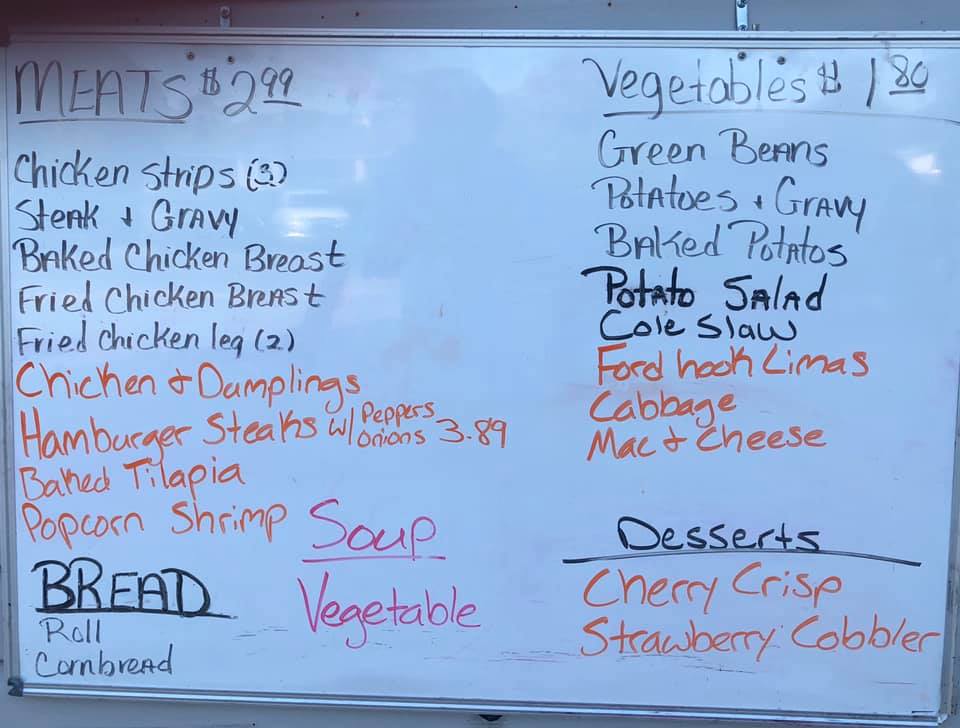 MEATS $2.99
Chicken strips (3)
Steak & Gravy
Baked Chicken Breast
Fried Chicken Breast
Fried chicken leg (2)
Chicken & Dumplings
Hamburger Steaks w/ Peppers Onions 3.89
Baked Tilapia
Popcorn Shrimp
BREAD
Roll
Cornbread
Soup
Vegetable
Vegetables $1.80
Green Beans
Potatoes & Gravy
Baked Potatos
Potato Salad
Cole Slaw
Ford hook Limas
Cabbage
Mac & Cheese
Desserts
Cherry Crisp
Strawberry Cobbler